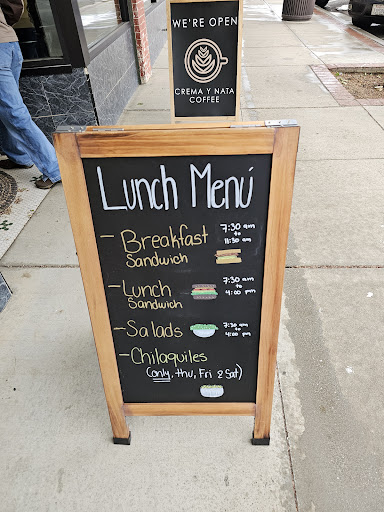 WE'RE OPEN
CREMA Y NATA
COFFEE
Lunch Menú
- Breakfast
Sandwich
7:30 am
to
11:30 am
- Lunch
Sandwich
7:30 am
to
4:00 pm
- Salads
7:30 am
to
4:00 pm
- Chilaquiles
(only, thu, Fri & Sat)